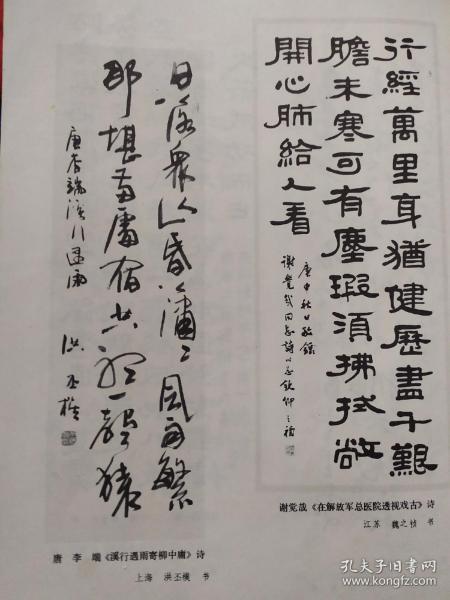 行經萬里身猶健歷盡千艱
膽未寒可有塵瑕須拂拭敞
開心肺給人看
庚申秋日敬錄
謝覺哉同志詩以志欽仰之禎
日落眾山昏瀟〻風雨繁
那堪兩處宿共聽一聲猿
唐李端溪行遇雨
洪丕模
谢觉哉《在解放军总医院透视戏古》诗
江苏 魏之祯 书
唐 李 端《溪行遇雨寄柳中庸》诗
上海 洪丕模 书
孔夫子旧书网